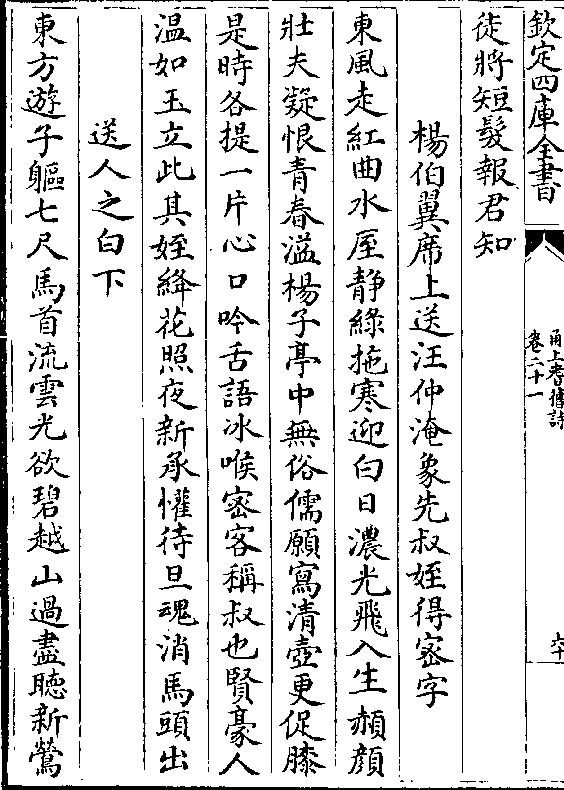 欽定四庫全書
甬上耆舊詩
卷二十一
六十
徒將短髮報君知
楊伯翼席上送汪仲淹象先叔姪得密字
東風走紅曲水厓静綠拖寒迎白日濃光飛入生赬顔
壯夫凝恨青春溢楊子亭中無俗儒願寫清壺更促膝
是時各提一片心口吟舌語冰喉密客稱叔也賢豪人
温如玉立此其姪絳花照夜新承懽待旦魂消馬頭出
送人之白下
東方遊子軀七尺馬首流雲光欲碧越山過盡聽新鶯